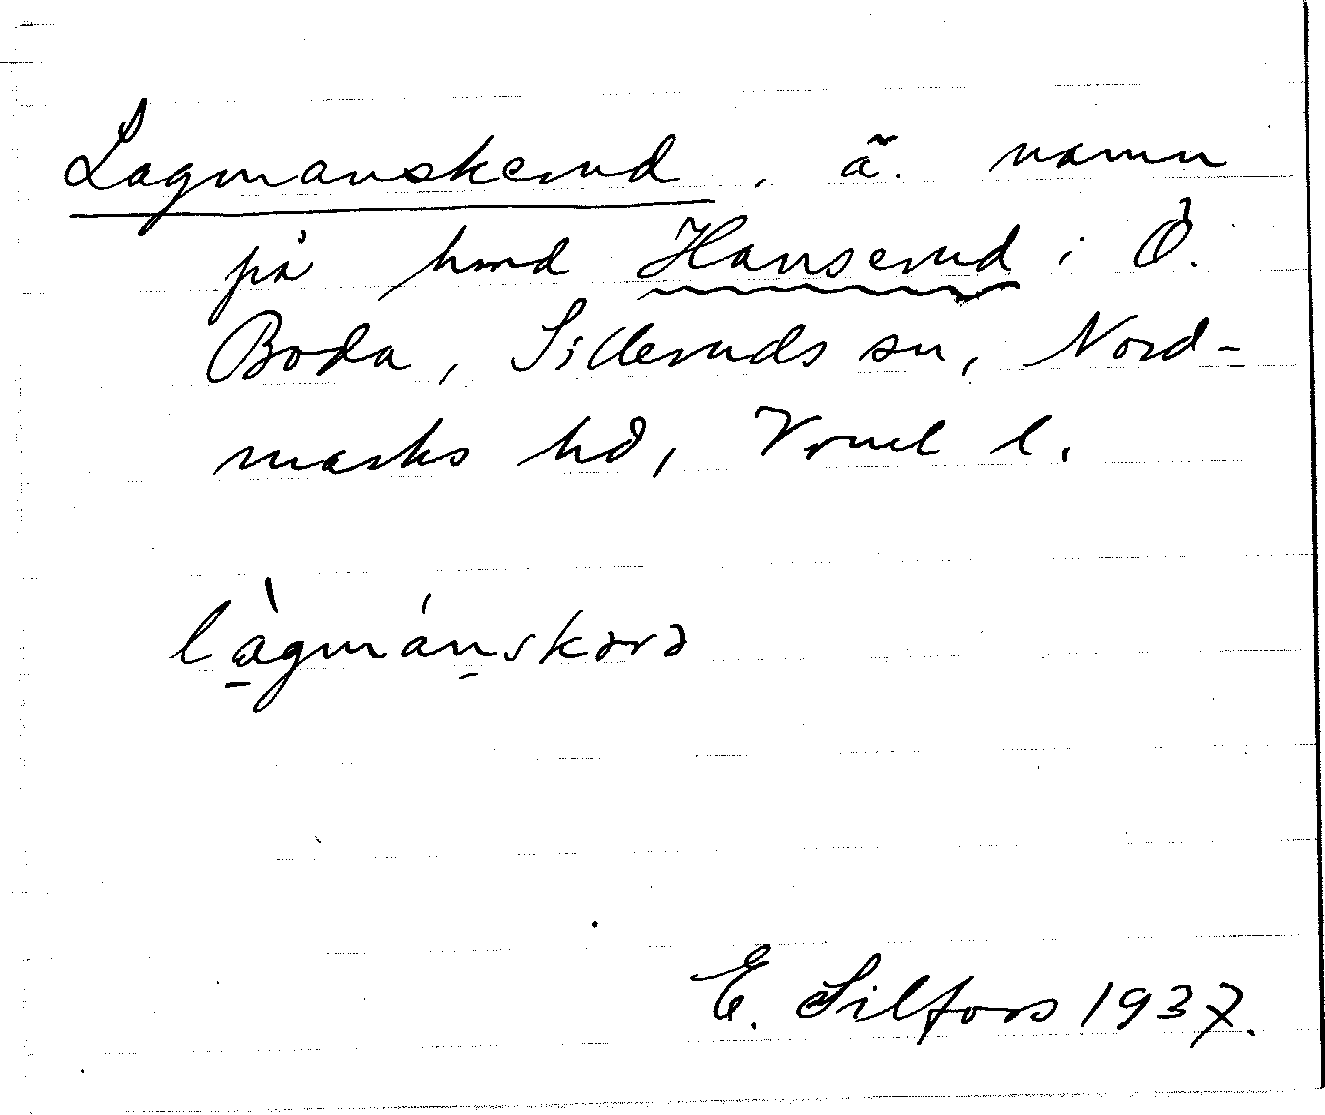 Lagmanskerud, ä. namn
på hmd Hanserud i Ö.
Boda, Silleruds sn, Nord-
marks hd, Vrml l.
làgmánskərə
E. Silfors 1937.